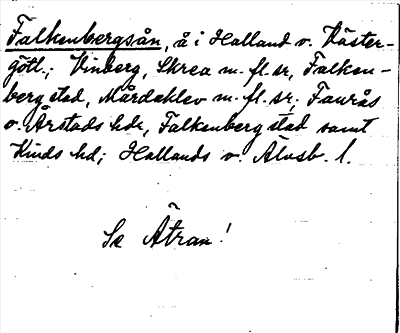 Falkenbergsån, å i Halland o. Väster-
götl.; Vinberg, Skrea m. fl. sr, Falken-
berg stad, Mårdaklev m. fl. sr; Faurås
o. Årstads hde, Falkenberg stad samt
Kinds hd; Hallands o. Älvsb. l.
Se Ätran!